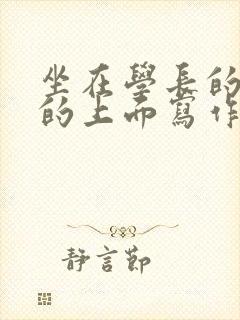 坐在學長的
的上而寫作
靜言節